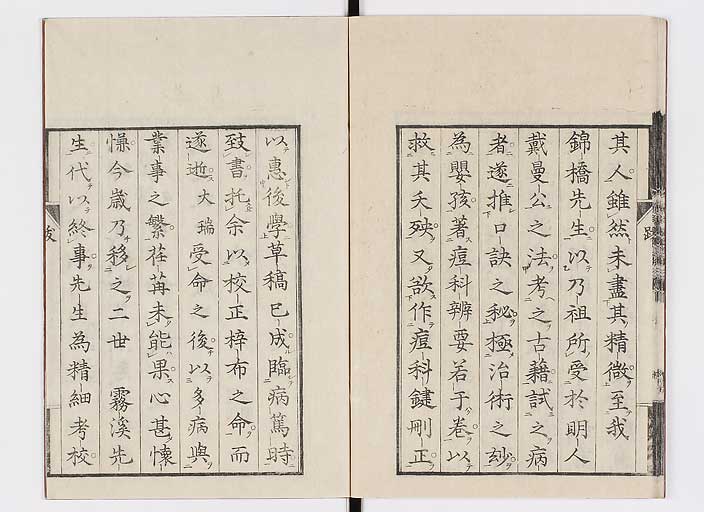 其人雖然未盡其精微至我
錦橋先生以乃祖所受於明人
戴曼公之法考之古籍試之病
者遂推口訣之秘極治術之玅
為嬰孩著痘科辨要若于卷以
救其夭殃又欲作痘科鍵刪正
以惠後學草稿已成臨病篤時
致書托余以校正梓布之命而
遂逝大瑞受命之後以多病與
業事之繁荏苒未能果心甚懷
懆今歳乃移之二世 霧溪先
生代以終事先生為精細考校
跋